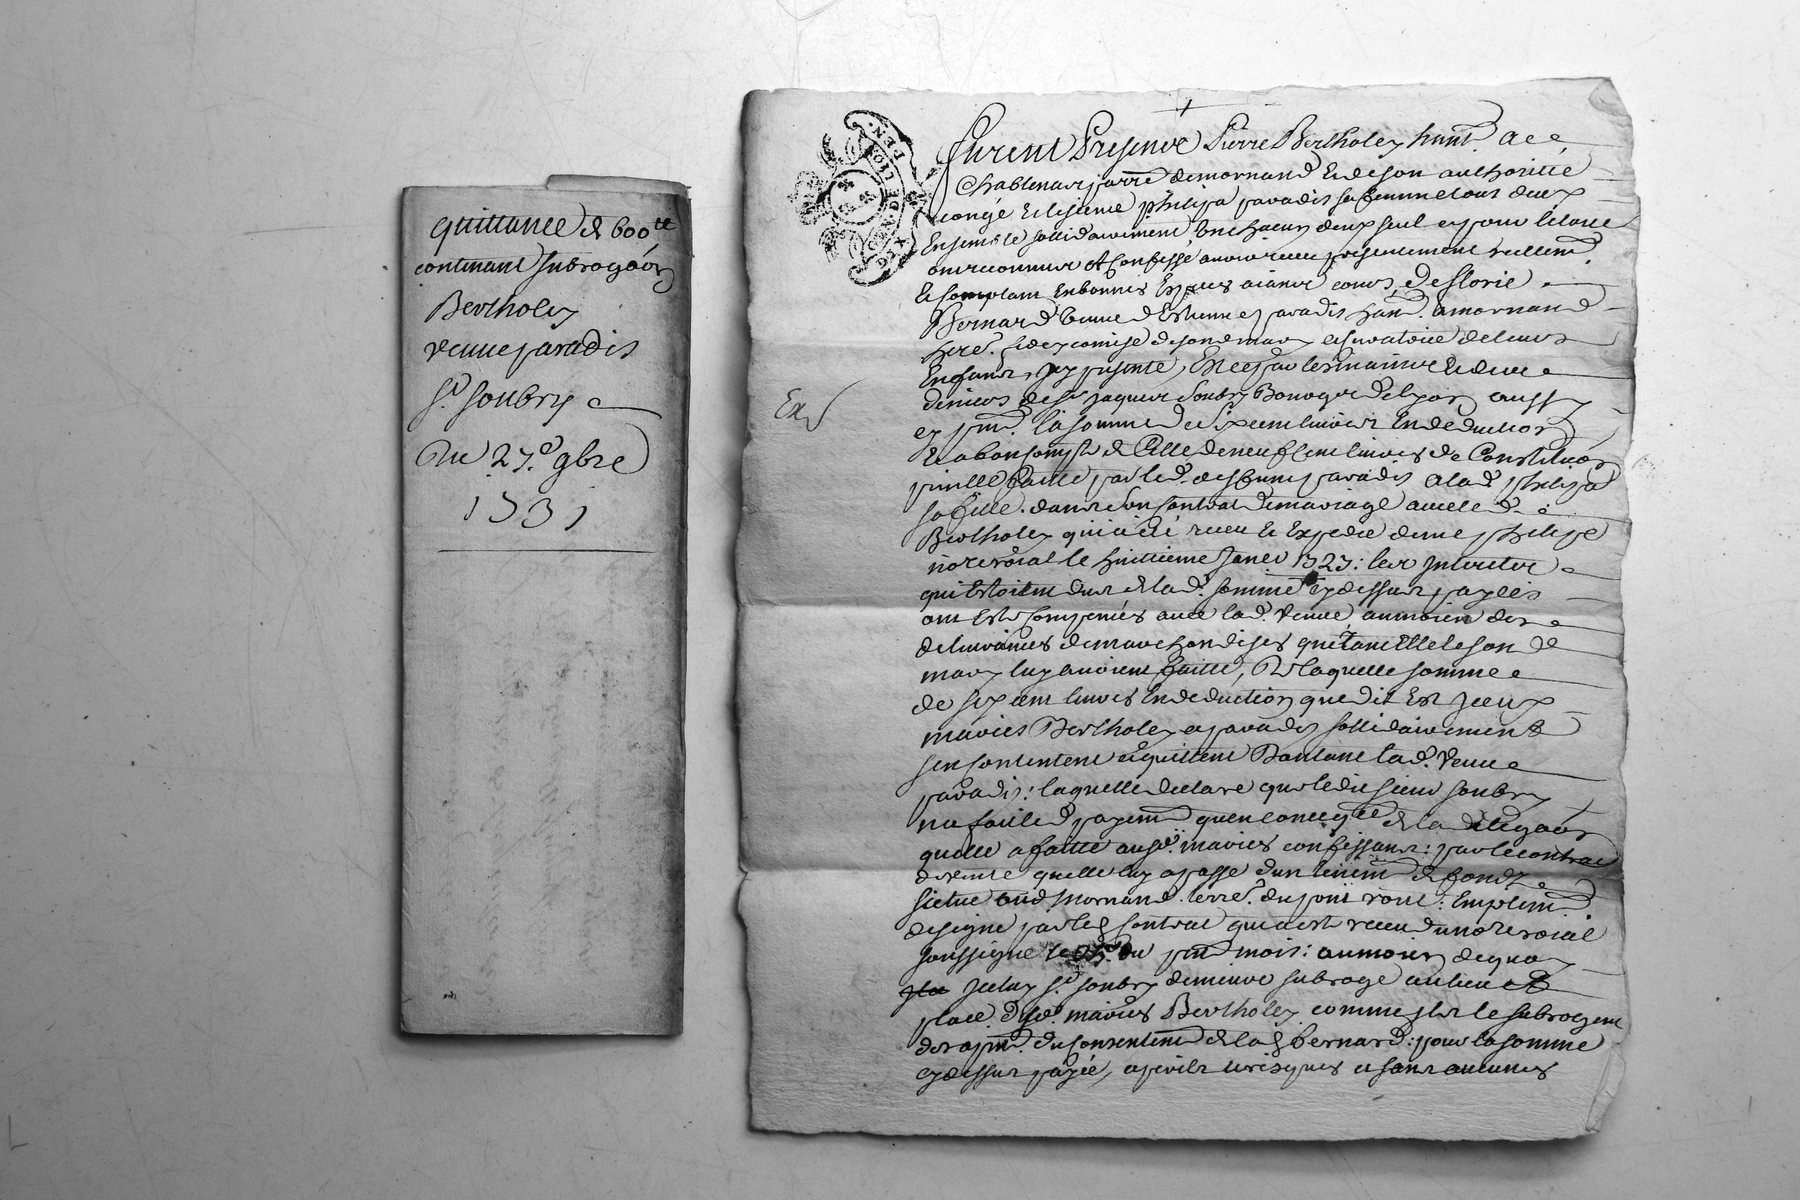 quittance de 600 ₶
contenant subrogaõn
Bertholey
veuve paradis
Sr. Soubry
Du 27e. 9bre
1731
GEN. DE LION
Furent Presence Pierre Bertholey hant. a
Chablenas parre. de mornand & de son authoritté
congé & licence philipa paradis sa femme tous deux
Ensemble sollidairement un chacun deux seul et pour le tout
ont reconnus et Confessé avoir receu presentement reellemt.
& comptant En bonnes Espèces aiants cours, de florie
Bernard veuve d'Estienne paradis hant. a mornand
here. fideycomise de son d. mary et curatrice de leurs
Enfants, jcy presente, Et ce par les mains & de
deniers de sr. jaques Soubry Bourgeois de lyon aussy
cy pnt. la somme de six cent livres En deduction
& a bon compte de Celle de neuf cent livres de Constitution
faitte par led. Estienne paradis a lad. philipa
sa fille dans son contrat de mariage avec led.
Bertholey qui a été receu & Expedié de me philipe
nore. roial le huittieme janer. 1727: les jnterets
qui Estoient dus de lad. somme cy dessus payée
ont Esté Compensés avec lad. veuve au moien des
delivrances de marchandises que tant Elle le son d.
mary luy avoient faitte, De laquelle somme
de six cent livres En deduction que dit Est jceux
mariés Bertholey et paradis sollidairement
sen contentent et quittent Dautant lad. veuve
paradis: laquelle declare que ledit sieur soubry
na fait led. payemt. quen conseqce de la delegaõn
quelle a faitte ausd. mariés confessants: par le contrat
de vente quelle luy a passé dun tenemt. de fonds
sictué aud. Mornand
designé par led. Contrat qui a esté receu du nore roial
soussigné le du pnt mois: au moien de quoy
jceluy sr. soubry demeure subrogé au lieu &
place desd. mariés Bertholey comme jls le subrogent
des a pnt. du consentemt. de lad. bernard: pour la somme
cy dessus payée, a perils risques et sans aucunes